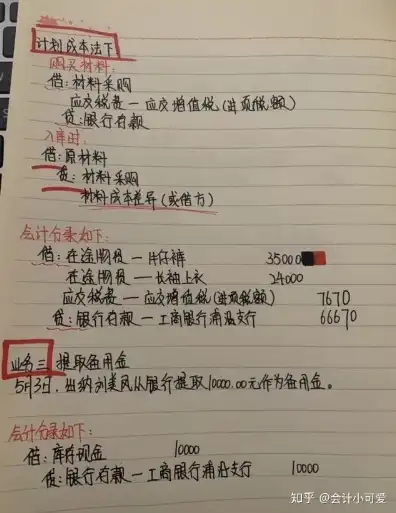 计划成本法下
购买材料：
借：材料采购
应交税费—应交增值税（进项税额）
贷：银行存款
入库时：
借：原材料
贷：材料采购
材料成本差异（或借方）
会计分录如下：
借：在途物资—牛仔裤 35000
在途物资—长袖上衣 24000
应交税费—应交增值税（进项税额） 7670
贷：银行存款—工商银行浦沿支行 66670
业务三 提取备用金
5月3日，出纳刘美凤从银行提取10000.00元作为备用金。
会计分录如下：
借：库存现金 10000
贷：银行存款—工商银行浦沿支行 10000
知乎 @会计小可爱